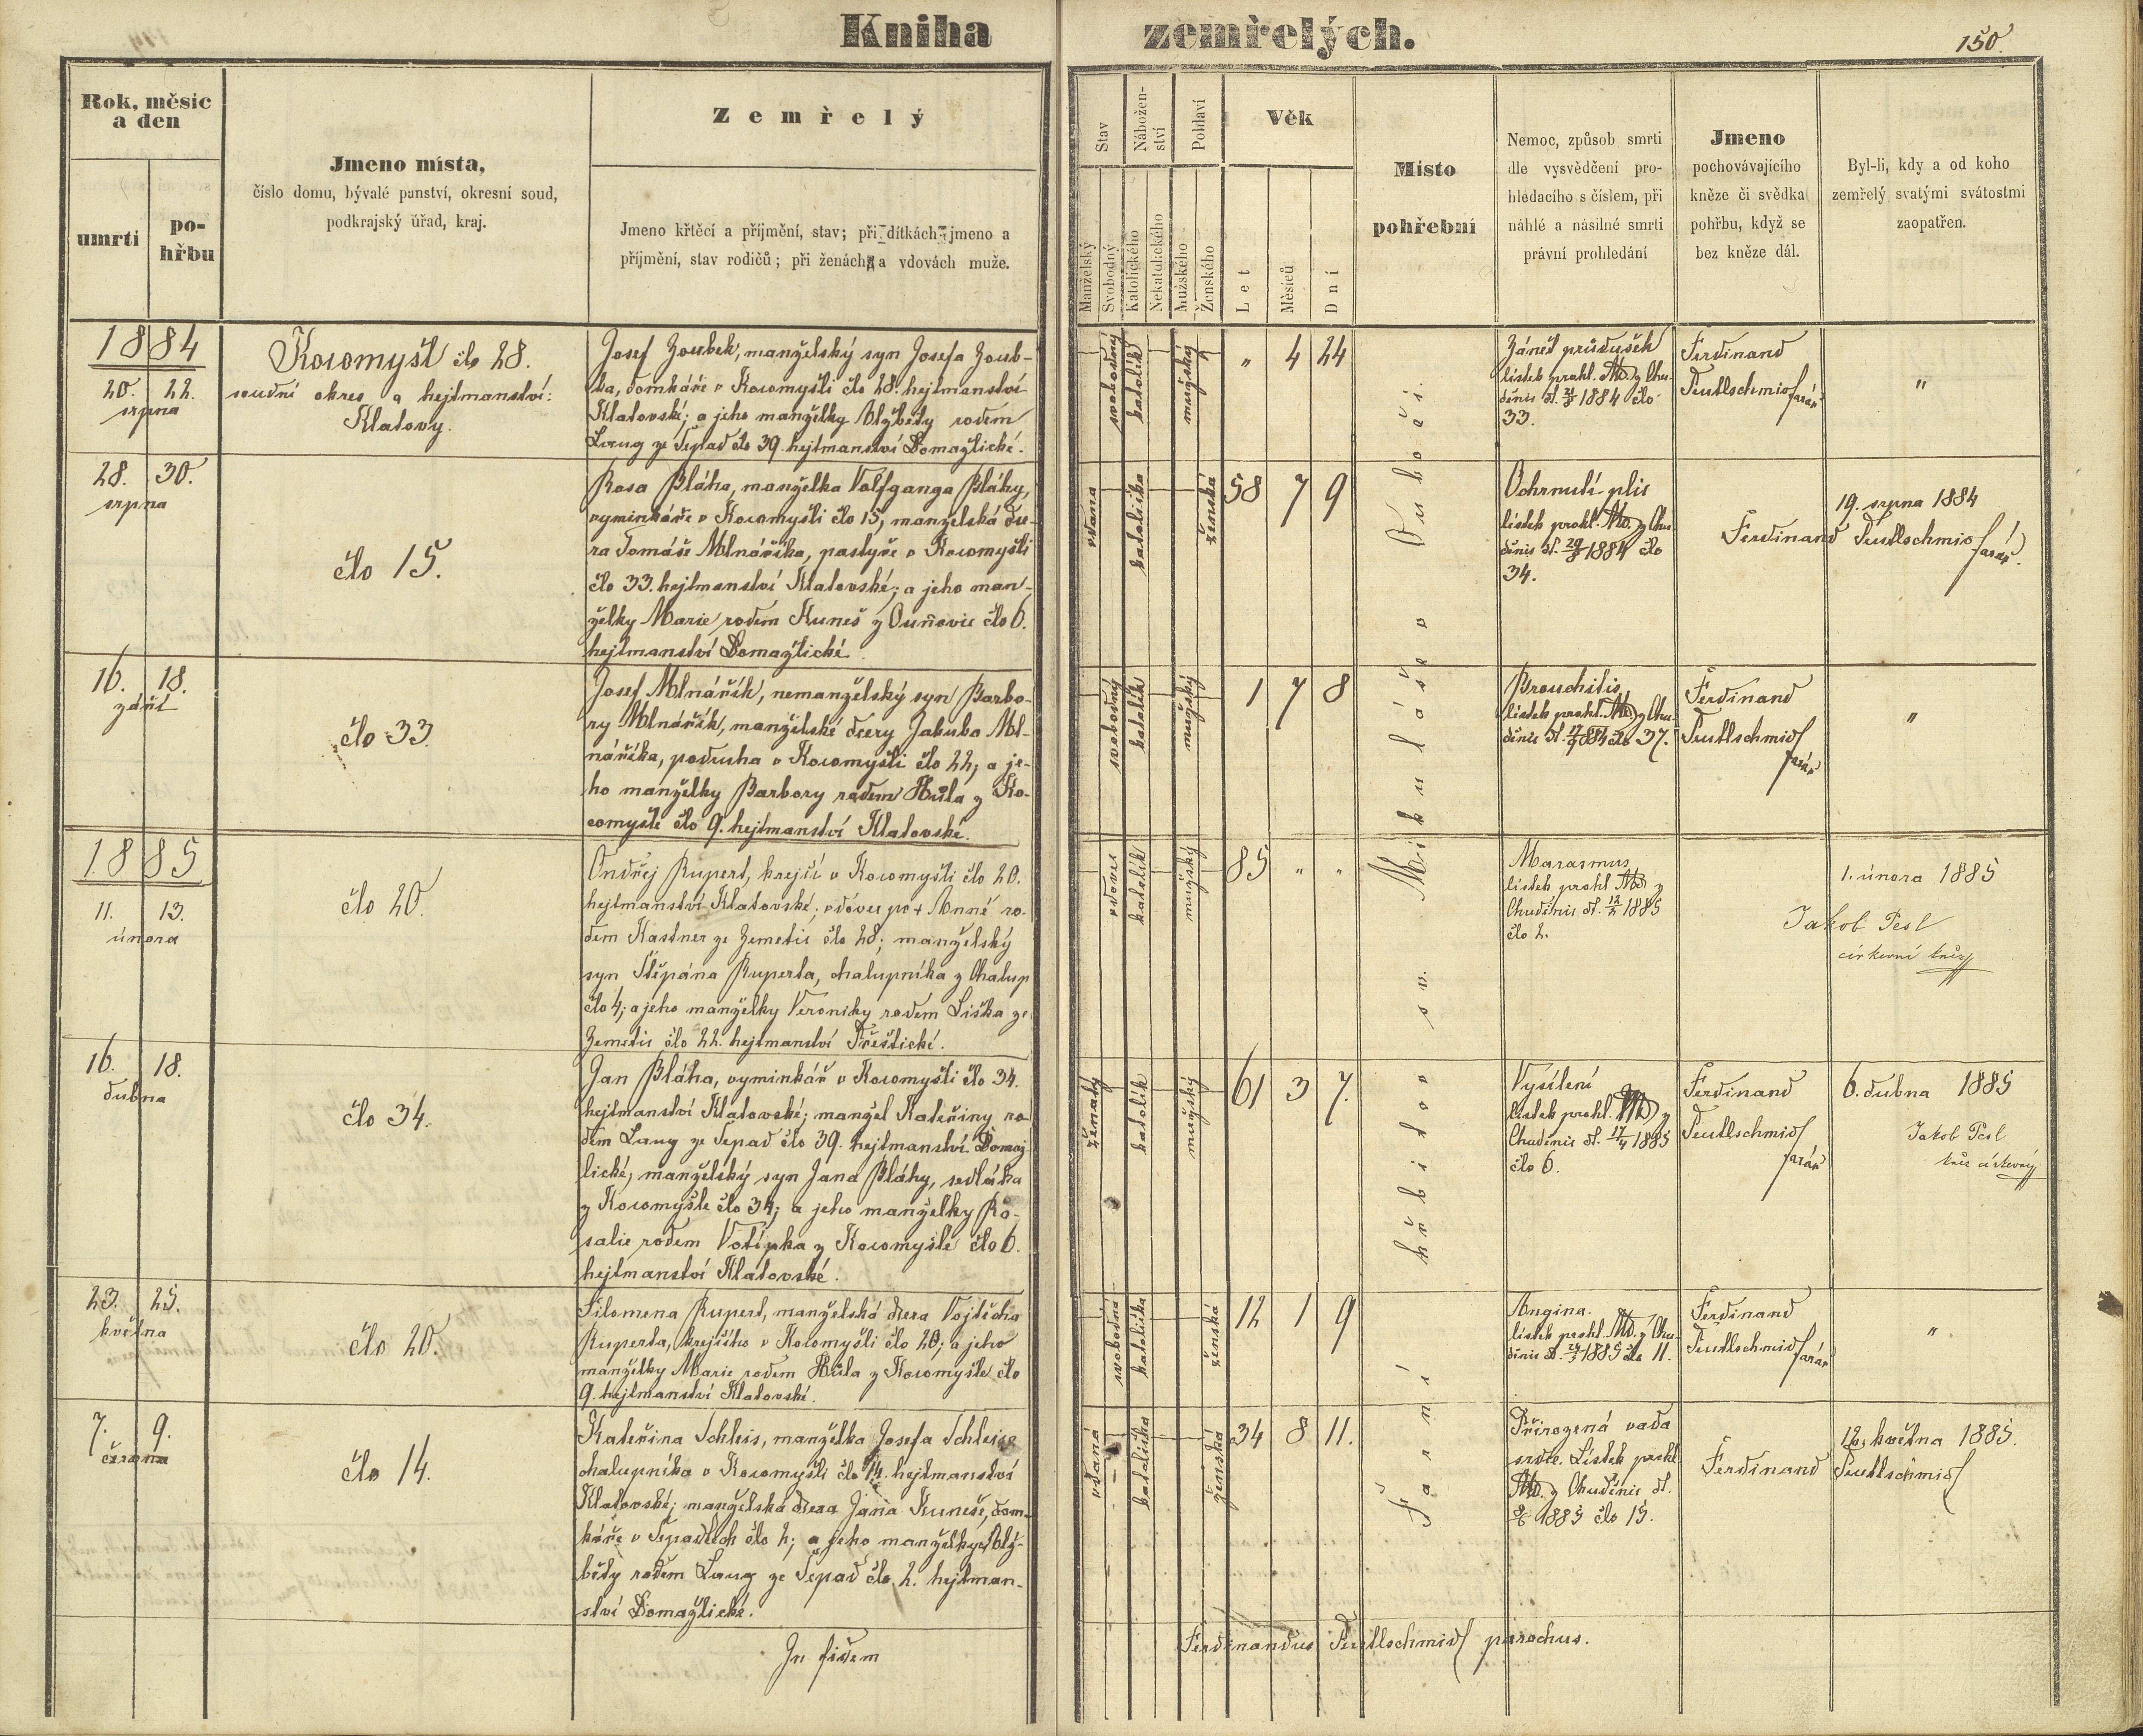 Kniha zemřelých.
150.
Rok, měsíc a den
umrtí
po-
hřbu
Jmeno místa,
číslo domu, bývalé panství, okresní soud,
podkrajský úřad, kraj.
Zemřelý
Jmeno křtěcí a příjmění, stav; při dítkách jmeno a
příjmění, stav rodičů; při ženách a vdovách muže.
Stav
Manželský
Svobodný
Nábožen-
ství
Katolického
Nekatolického
Pohlaví
Mužského
Ženského
Věk
Let
Měsíců
Dní
Místo
pohřební
Nemoc, způsob smrti
dle vysvědčení pro-
hledacího s číslem, při
náhlé a násilné smrti
právní prohledání
Jmeno
pochovávajícího
kněze či svědka
pohřbu, když se
bez kněze dál.
Byl-li, kdy a od koho
zemřelý svatými svátostmi
zaopatřen.
1884
20. 22.
srpna
Kocomyšl čís 28.
soudní okres a hejtmanství:
Klatovy.
Josef Zoubek, manželský syn Josefa Zoub-
ka, domkáře v Kocomyšli čís 28. hejtmanství
Klatovské; a jeho manželky Alžběty rodem
Lang ze Sepad čís 39. hejtmanství Domažlické.
svobodný
katolík
mužský
" 4 24
Zánět průdušek
lístek prohl. z Chu-
děnic 1884 čís
33.
Ferdinand
Teutlschmid farář
"
28. 30.
srpna
čís 15.
Rosa Bláha, manželka Volfganga Bláhy,
vyminkáře v Kocomyšli čís 15, manželská dce-
ra Tomáše Mlnáříka, pastýře v Kocomyšli
čís 33. hejtmanství Klatovské; a jeho man-
želky Marie rodem Kuneš z Ouňovic čís 6.
hejtmanství Domažlické.
vdaná
katolička
ženská
58 7 9
Ochrnutí plic
lístek prohl. z Chu-
děnic d. 29/8 1884 čís
34.
19. srpna 1884
Ferdinand Teutlschmid farář.
16. 18.
září
čís 33.
Josef Mlnářík, nemanželský syn Barbo-
ry Mlnářík, manželské dcery Jakuba Ml-
náříka, podruha v Kocomyšli čís 22; a je-
ho manželky Barbory rodem Hůla z Ko-
comyšle čís 9. hejtmanství Klatovské.
svobodný
katolík
mužský
1 7 8
Bronchitis
lístek prohl. z Chu-
děnic d. 17/9 84 čís 37.
Ferdinand
Teutlschmid
farář
"
1885
11. 13.
února
čís 20.
Ondřej Rupert, krejčí v Kocomyšli čís 20.
hejtmanství Klatovské; vdovec po + Anně ro-
dem Kastner ze Zemetic čís 28; manželský
syn Štěpána Ruperta, chalupníka z Chalup
čís 4; a jeho manželky Veroniky rodem Liška ze
Zemetic čís 22. hejtmanství Přeštické.
vdovec
katolík
mužský
85 " "
Marasmus
lístek prohl. z
Chuděnic d. 12/2 1885
čís 2.
1. února 1885
Jakob Pesl
církevní kněz
16. 18.
dubna
čís 34.
Jan Bláha, vyminkář v Kocomyšli čís 34.
hejtmanství Klatovské; manžel Kateřiny ro-
dem Lang ze Sepad čís 39. hejtmanství Domaž-
lické, manželský syn Jana Bláhy, sedláka
z Kocomyšle čís 34; a jeho manželky Ro-
salie rodem Votipka z Kocomyšle čís 6.
hejtmanství Klatovské.
ženatý
katolík
mužský
61 3 7.
Vysílení
lístek prohl. z
Chuděnic d. 17/4 1885
čís 6.
Ferdinand
Teutlschmid
farář
6. dubna 1885
Jakob Pesl
kněz církevný
23. 25.
května
čís 20.
Filomena Rupert, manželská dcera Vojtěcha
Ruperta, krejčího v Kocomyšli čís 20; a jeho
manželky Marie rodem Hůla z Kocomyšle čís
9. hejtmanství Klatovské.
svobodná
katolička
ženská
12 1 9
Angina.
lístek prohl. z Chu-
děnic d. 24/5 1885 čís 11.
Ferdinand
Teutlschmid farář
"
7. 9.
června
čís 14.
Kateřina Schleis, manželka Josefa Schleise
chalupníka v Kocomyšli čís 14. hejtmanství
Klatovské; manželská dcera Jana Kuneše, dom-
káře v Sepadlech čís 2; a jeho manželky Alž-
běty rodem Lang ze Sepad čís 2. hejtman-
ství Domažlické.
vdaná
katolička
ženská
34 8 11.
Přirozená vada
srdce. Lístek prohl.
z Chuděnic d.
8/6 1885 čís 15.
12. května 1885.
Ferdinand Teutlschmid
Farní hřbitov sv. Mikuláše v Pušoči.
In fidem
Ferdinandus Teutlschmid parochus.